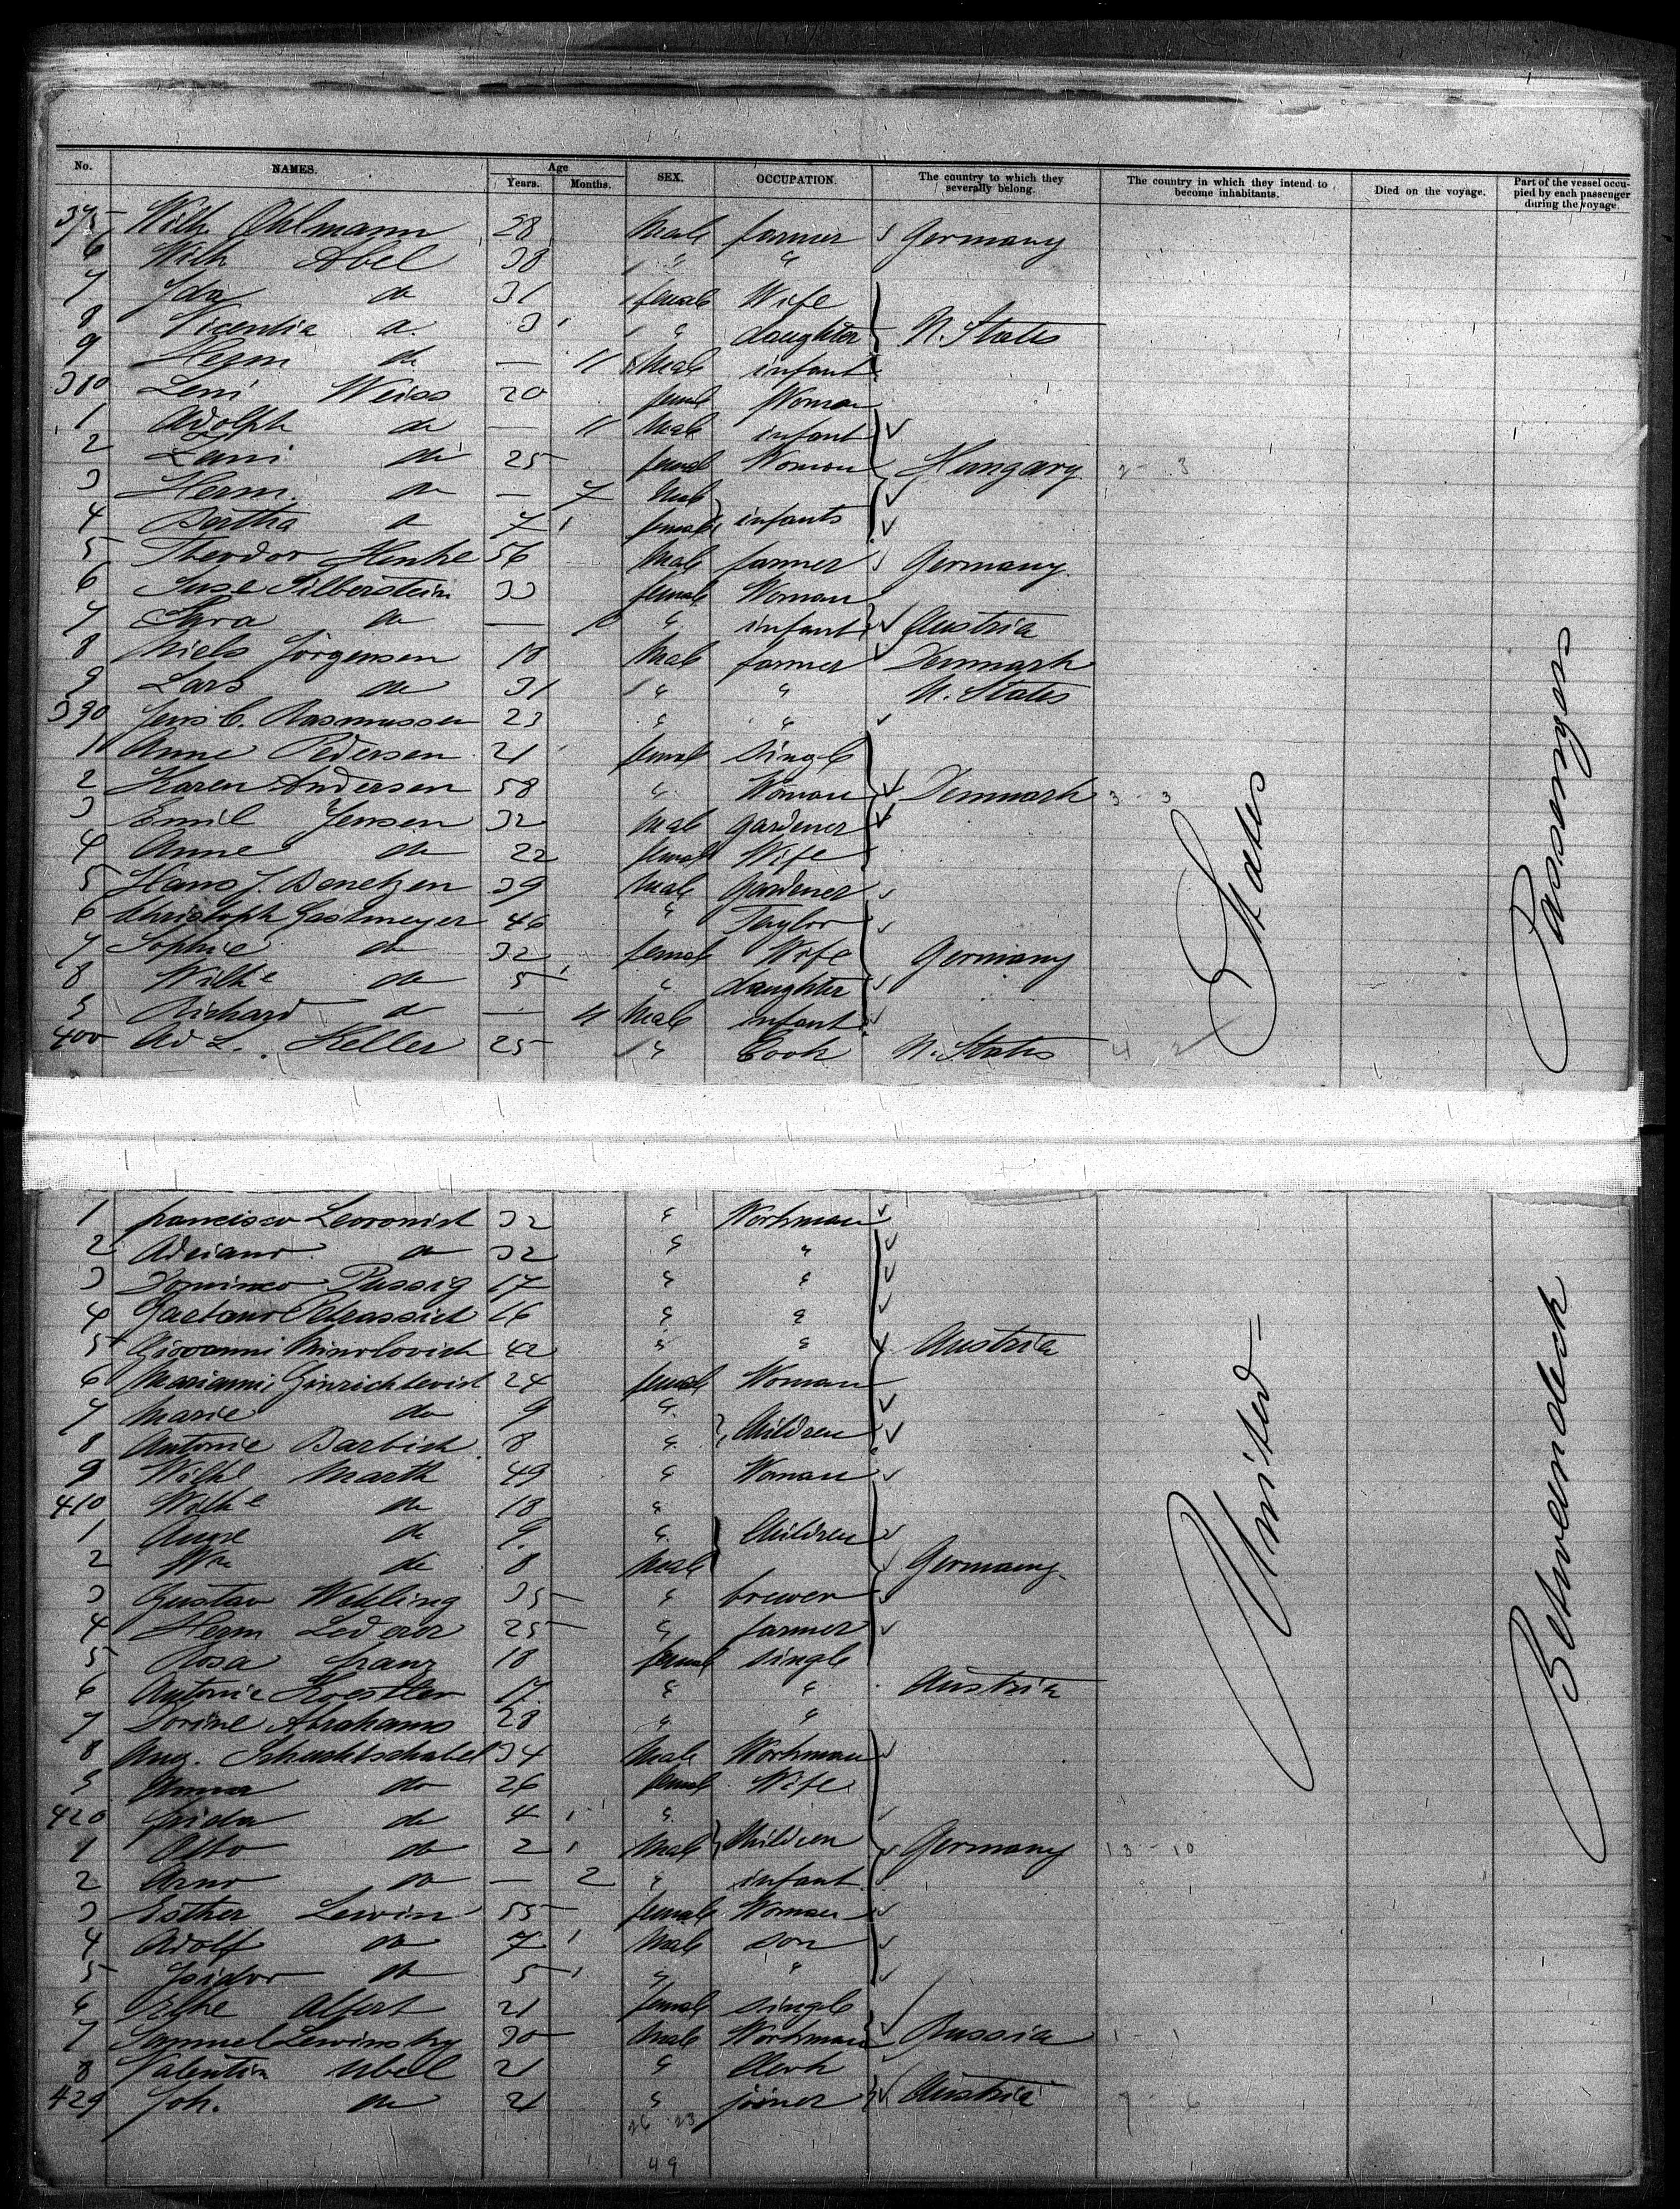 No. NAMES. Age Years. Months. SEX. OCCUPATION. The country to which they severally belong. The country in which they intend to become inhabitants. Died on the voyage. Part of the vessel occupied by each passenger during the voyage.
375 Wilh Ohlmann 28 Male farmer Germany
6 Wilh Abel 38 " "
7 Ida do 31 female Wife
8 Vicentia do 3 " daughter U. States
9 Herm do — 11 Male infant
380 Leni Weiss 20 female Woman
1 Adolph do — 11 Male infant
2 Zani do 25 female Woman Hungary 2 - 3
3 Herm. do — 7 Male
4 Bertha do 7 female infants
5 Theodor Henke 56 Male farmer Germany
6 Suse Silberstein 33 female Woman
7 Sara do — " infant Austria
8 Niels Jörgensen 18 Male farmer Denmark
9 Lars do 31 " " U. States
390 Jens C. Rasmussen 23 " "
1 Anne Pedersen 21 female single
2 Karen Andersen 58 " Woman Denmark 3 - 3
3 Emil Jensen 32 Male gardener
4 Anne do 22 female Wife
5 Hans J. 39 Male gardener
6 Christoph Gastmeyer 46 " Taylor
7 Sophie do 32 female Wife Germany
8 Wilhe do 5 " daughter
9 Richard do — 11 Male infant
400 Ad L. Keller 25 " Cook U. States 4 2
States
Passengers
1 francisco 32 " Workman
2 Adriano do 32 " "
3 Dominco Pussig 17 " "
4 Gaetano Petrassich 16 " "
5 Giovanni 42 " " Austria
6 24 female Woman
7 Marie do 9 "
8 Antonie Barbich 8 " Children
9 Wilhe Marth 49 " Woman
410 Wilhe do 18 "
1 Anne do 9 " Children
2 Wm do 8 Male Germany
3 Gustav Wehling 35 " brewer
4 Herm Lederer 25 " farmer
5 Rosa franz 18 female single
6 Antonie Koestler 17 " " Austria
7 Dorine Abrahams 28 " "
8 Aug. 34 Male Workman
9 Anna do 26 female Wife
420 frida do 4 "
1 Otto do 2 Male Children Germany 13 - 10
2 Arno do — 2 " infant
3 Esther Lewin 55 female Woman
4 Adolf do 7 Male son
5 Isidor do 5 " "
6 Elke Alfert 21 female single
7 Samuel Lewinsky 30 Male Workman Russia 1 - 1
8 Valentin Ubel 21 " Clerk
429 Joh. do 21 " joiner Austria 7 - 6
26 23
49
United
Betweendeck